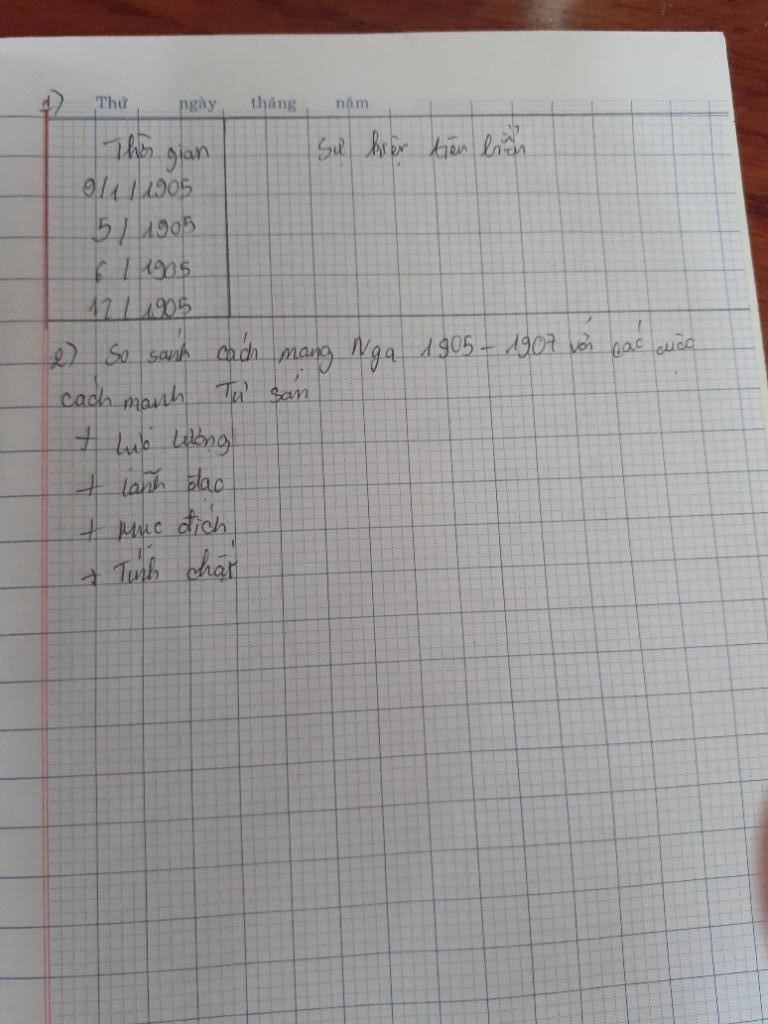 1) Thứ ngày tháng năm
Thời gian Sự kiện tiêu biểu
9/1/1905
5/1905
6/1905
12/1905
2) So sánh cách mạng Nga 1905 - 1907 với các cuộc
cách manh Tư sản
+ Lực lượng
+ Lãnh đạo
+ Mục đích
+ Tính chất